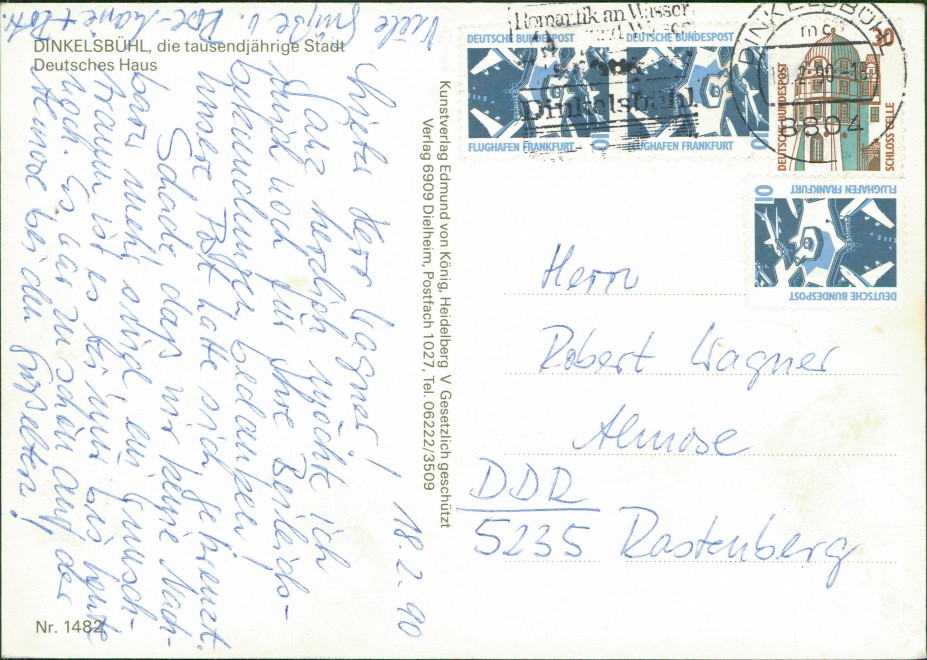 DINKELSBÜHL, die tausendjährige Stadt
Deutsches Haus
18.2.90
Lieber Herr Wagner!
Ganz herzlich möchte ich
mich noch für Ihre Beileids-
bekundungen bedanken!
Unsere Post hatte sich gekreuzt.
Schade, daß wir keine Nach-
barn mehr sind, ein Wunsch-
traum ist es für uns bis heute
noch. Es war zu schön auf der
Almose bei den
Viele Grüße v.
Nr. 1482
Kunstverlag Edmund von König, Heidelberg V Gesetzlich geschützt
Verlag 6909 Dielheim, Postfach 1027, Tel. 06222/3509
Romantik an Wasser
Dinkelsbühl
DINKELSBÜHL
8804
DEUTSCHE BUNDESPOST
FLUGHAFEN FRANKFURT
10
DEUTSCHE BUNDESPOST
FLUGHAFEN FRANKFURT
10
DEUTSCHE BUNDESPOST
30
SCHLOSS CELLE
DEUTSCHE BUNDESPOST
FLUGHAFEN FRANKFURT
10
Herrn
Robert Wagner
Almose
DDR
5235 Rastenberg